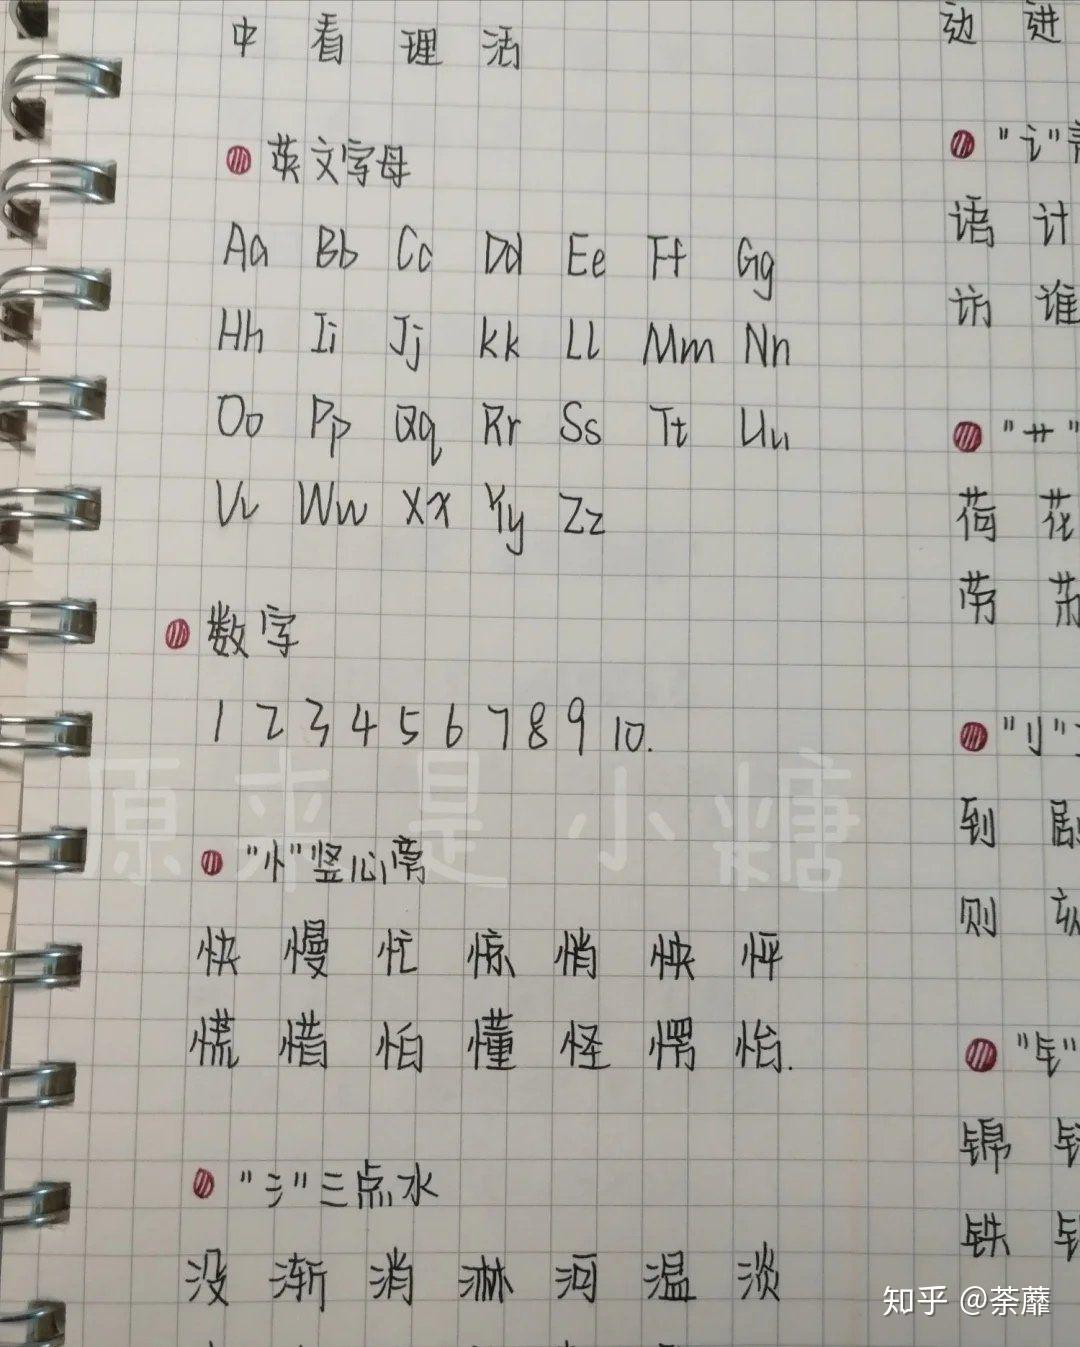 中 看 理 活
英文字母
Aa Bb Cc Dd Ee Ff Gg
Hh Ii Jj Kk Ll Mm Nn
Oo Pp Qq Rr Ss Tt Uu
Vv Ww Xx Yy Zz
数字
1 2 3 4 5 6 7 8 9 10.
原来是小糖
"忄"竖心旁
快 慢 忙 惊 悄 怏 怦
慌 惜 怕 懂 怪 愕 怡.
"氵"三点水
没 渐 消 淋 河 温 淡
边 进
"讠"
语 计
访 谁
"艹"
荷 花
"刂"
到 剧
则
"钅"
锦
铁
知乎 @荼蘼